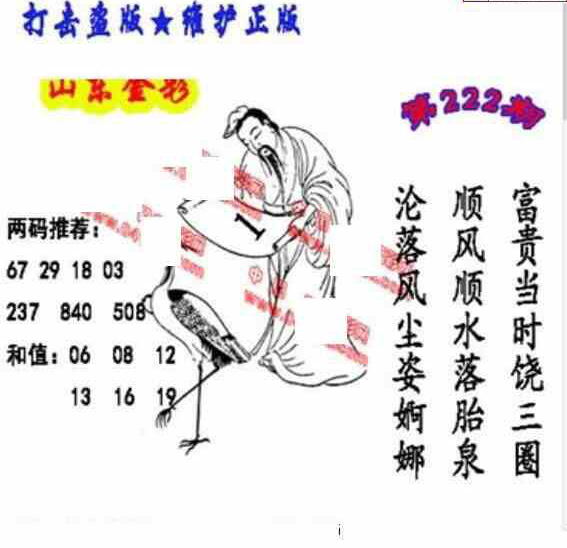 打击盗版★维护正版
山东金彩
第222期
富贵当时饶三圈
顺风顺水落胎泉
沦落风尘姿婀娜
1
两码推荐：
67 29 18 03
237 840 508
和值：06 08 12
13 16 19